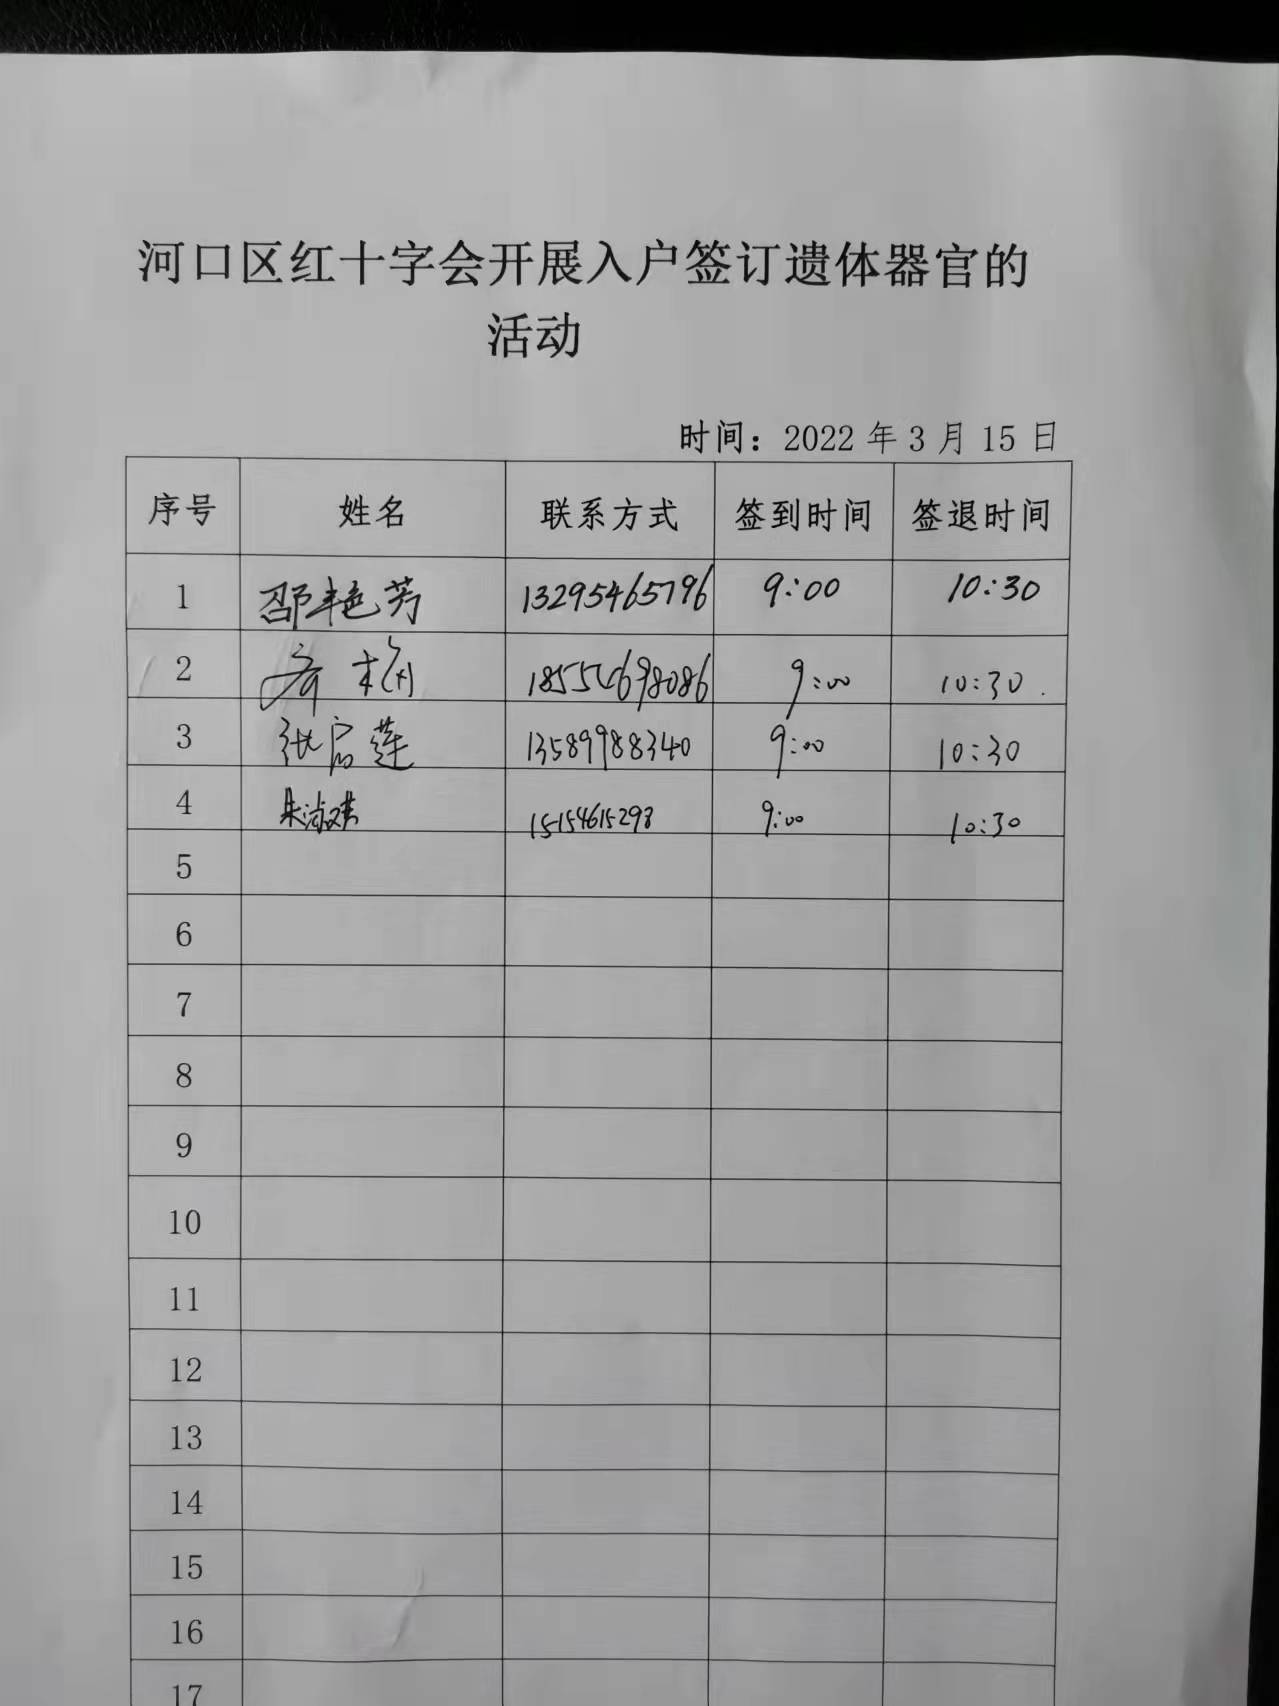 河口区红十字会开展入户签订遗体器官的
活动
时间：2022 年 3 月 15 日
序号 姓名 联系方式 签到时间 签退时间
1 邵艳芳 13295465796 9:00 10:30
2 18554698086 9:00 10:30.
3 张启莲 13589988340 9:00 10:30
4 朱淑琪 15154615293 9:00 10:30
5
6
7
8
9
10
11
12
13
14
15
16
17